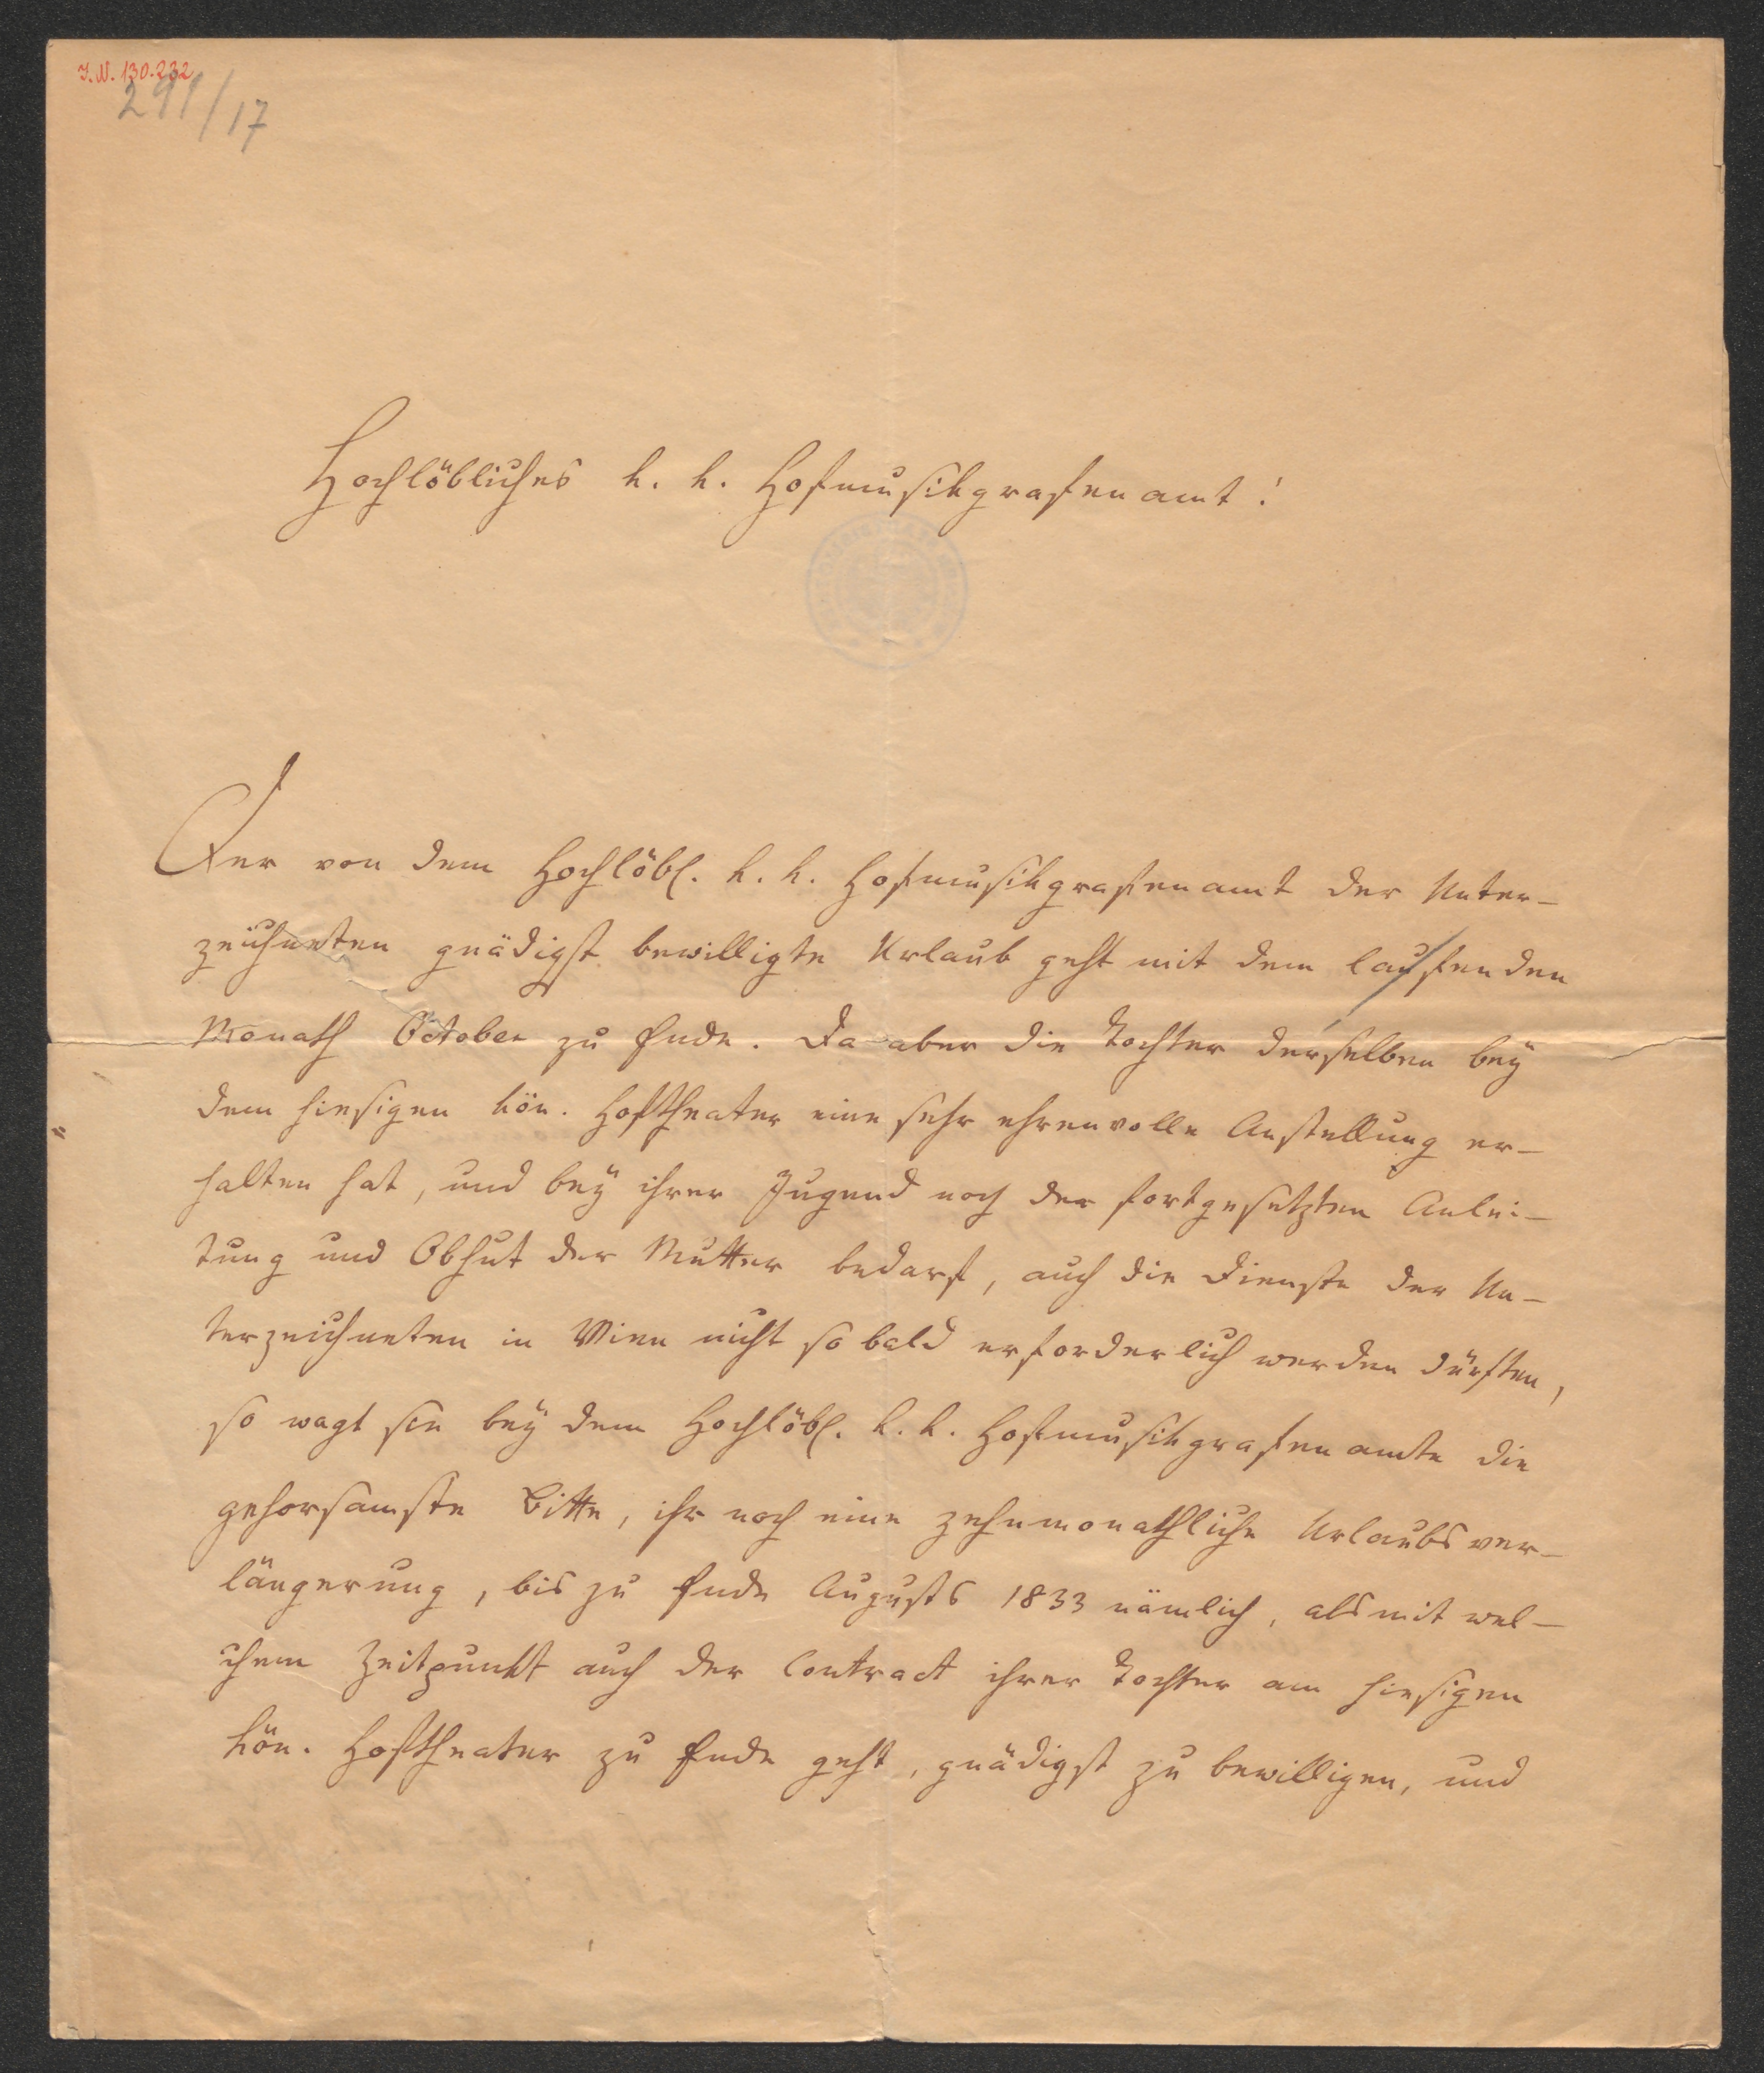 I.N. 130.232
291/17
Hochlöbliches k. k. Hofmusikgrafenamt!
Der von dem Hochlöbl. k. k. Hofmusikgrafenamt der Unter-
zeichneten gnädigst bewilligte Urlaub geht mit dem laufenden
Monath October zu Ende. Da aber die Tochter derselben bey
dem hiesigen kön. Hoftheater eine sehr ehrenvolle Anstellung er-
halten hat, und bey ihrer Jugend noch der fortgesetzten Anlei-
tung und Obhut der Mutter bedarf, auch die Dienste der Un-
terzeichneten in Wien nicht so bald erforderlich werden dürften,
so wagt sie bey dem Hochlöbl. k. k. Hofmusikgrafenamte die
gehorsamste Bitte, ihr noch eine zehnmonathliche Urlaubsver-
längerung, bis zu Ende Augusts 1833 nämlich, als mit wel-
chem Zeitpunkt auch der Contract ihrer Tochter am hiesigen
kön. Hoftheater zu Ende geht, gnädigst zu bewilligen, und